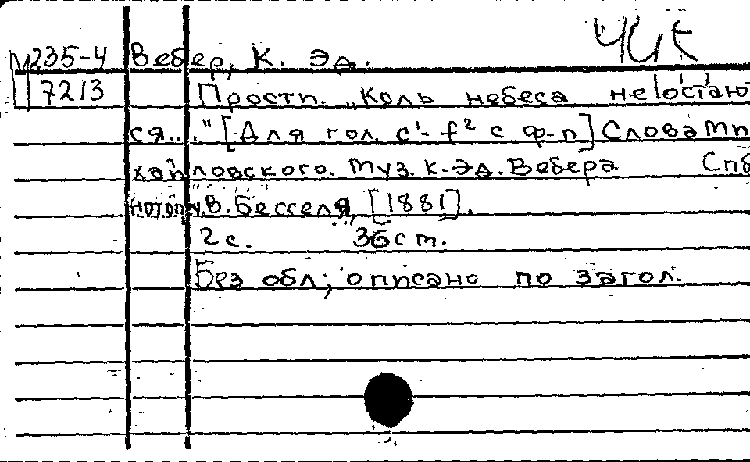 М235-4 Вебер, К. Эд. Чит
7213 Прости. „Коль небеса не остаю
ся..." [Для гол. с¹-f² с ф-п] Слова Ми
хайловского. Муз. К. Эд. Вебера Спб
нотопч. В. Бесселя, [1881].
2с. 35 ст.
Без обл; описано по загол.